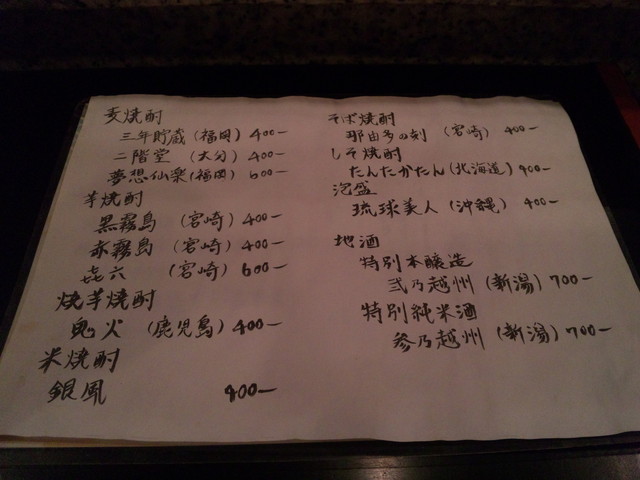 麦焼酎
三年貯蔵(福岡) 400-
二階堂 (大分) 400-
夢想仙楽(福岡) 600-
芋焼酎
黒霧島 (宮崎) 400-
赤霧島 (宮崎) 400-
㐂六 (宮崎) 600-
焼芋焼酎
鬼火 (鹿児島) 400-
米焼酎
銀風 400-
そば焼酎
那由多の刻 (宮崎) 400-
しそ焼酎
たんたかたん(北海道) 400-
泡盛
琉球美人 (沖縄) 400-
地酒
特別本醸造
弐乃越州 (新潟) 700-
特別純米酒
参乃越州 (新潟) 700-